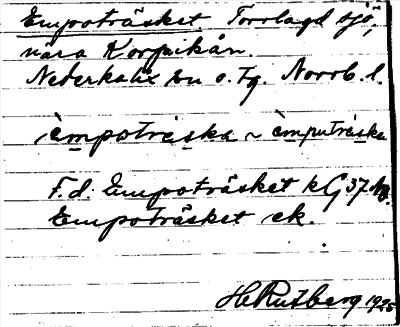 Empoträsket. Torrlagd sjö,
nära Korpikån.
Nederkalix sn o. tg. Norrb. l.
èmpotrà̀ska ~ èmputrà̀ska
F.d. Empoträsket kG 37
Empoträsket ek.
HRutberg 1925